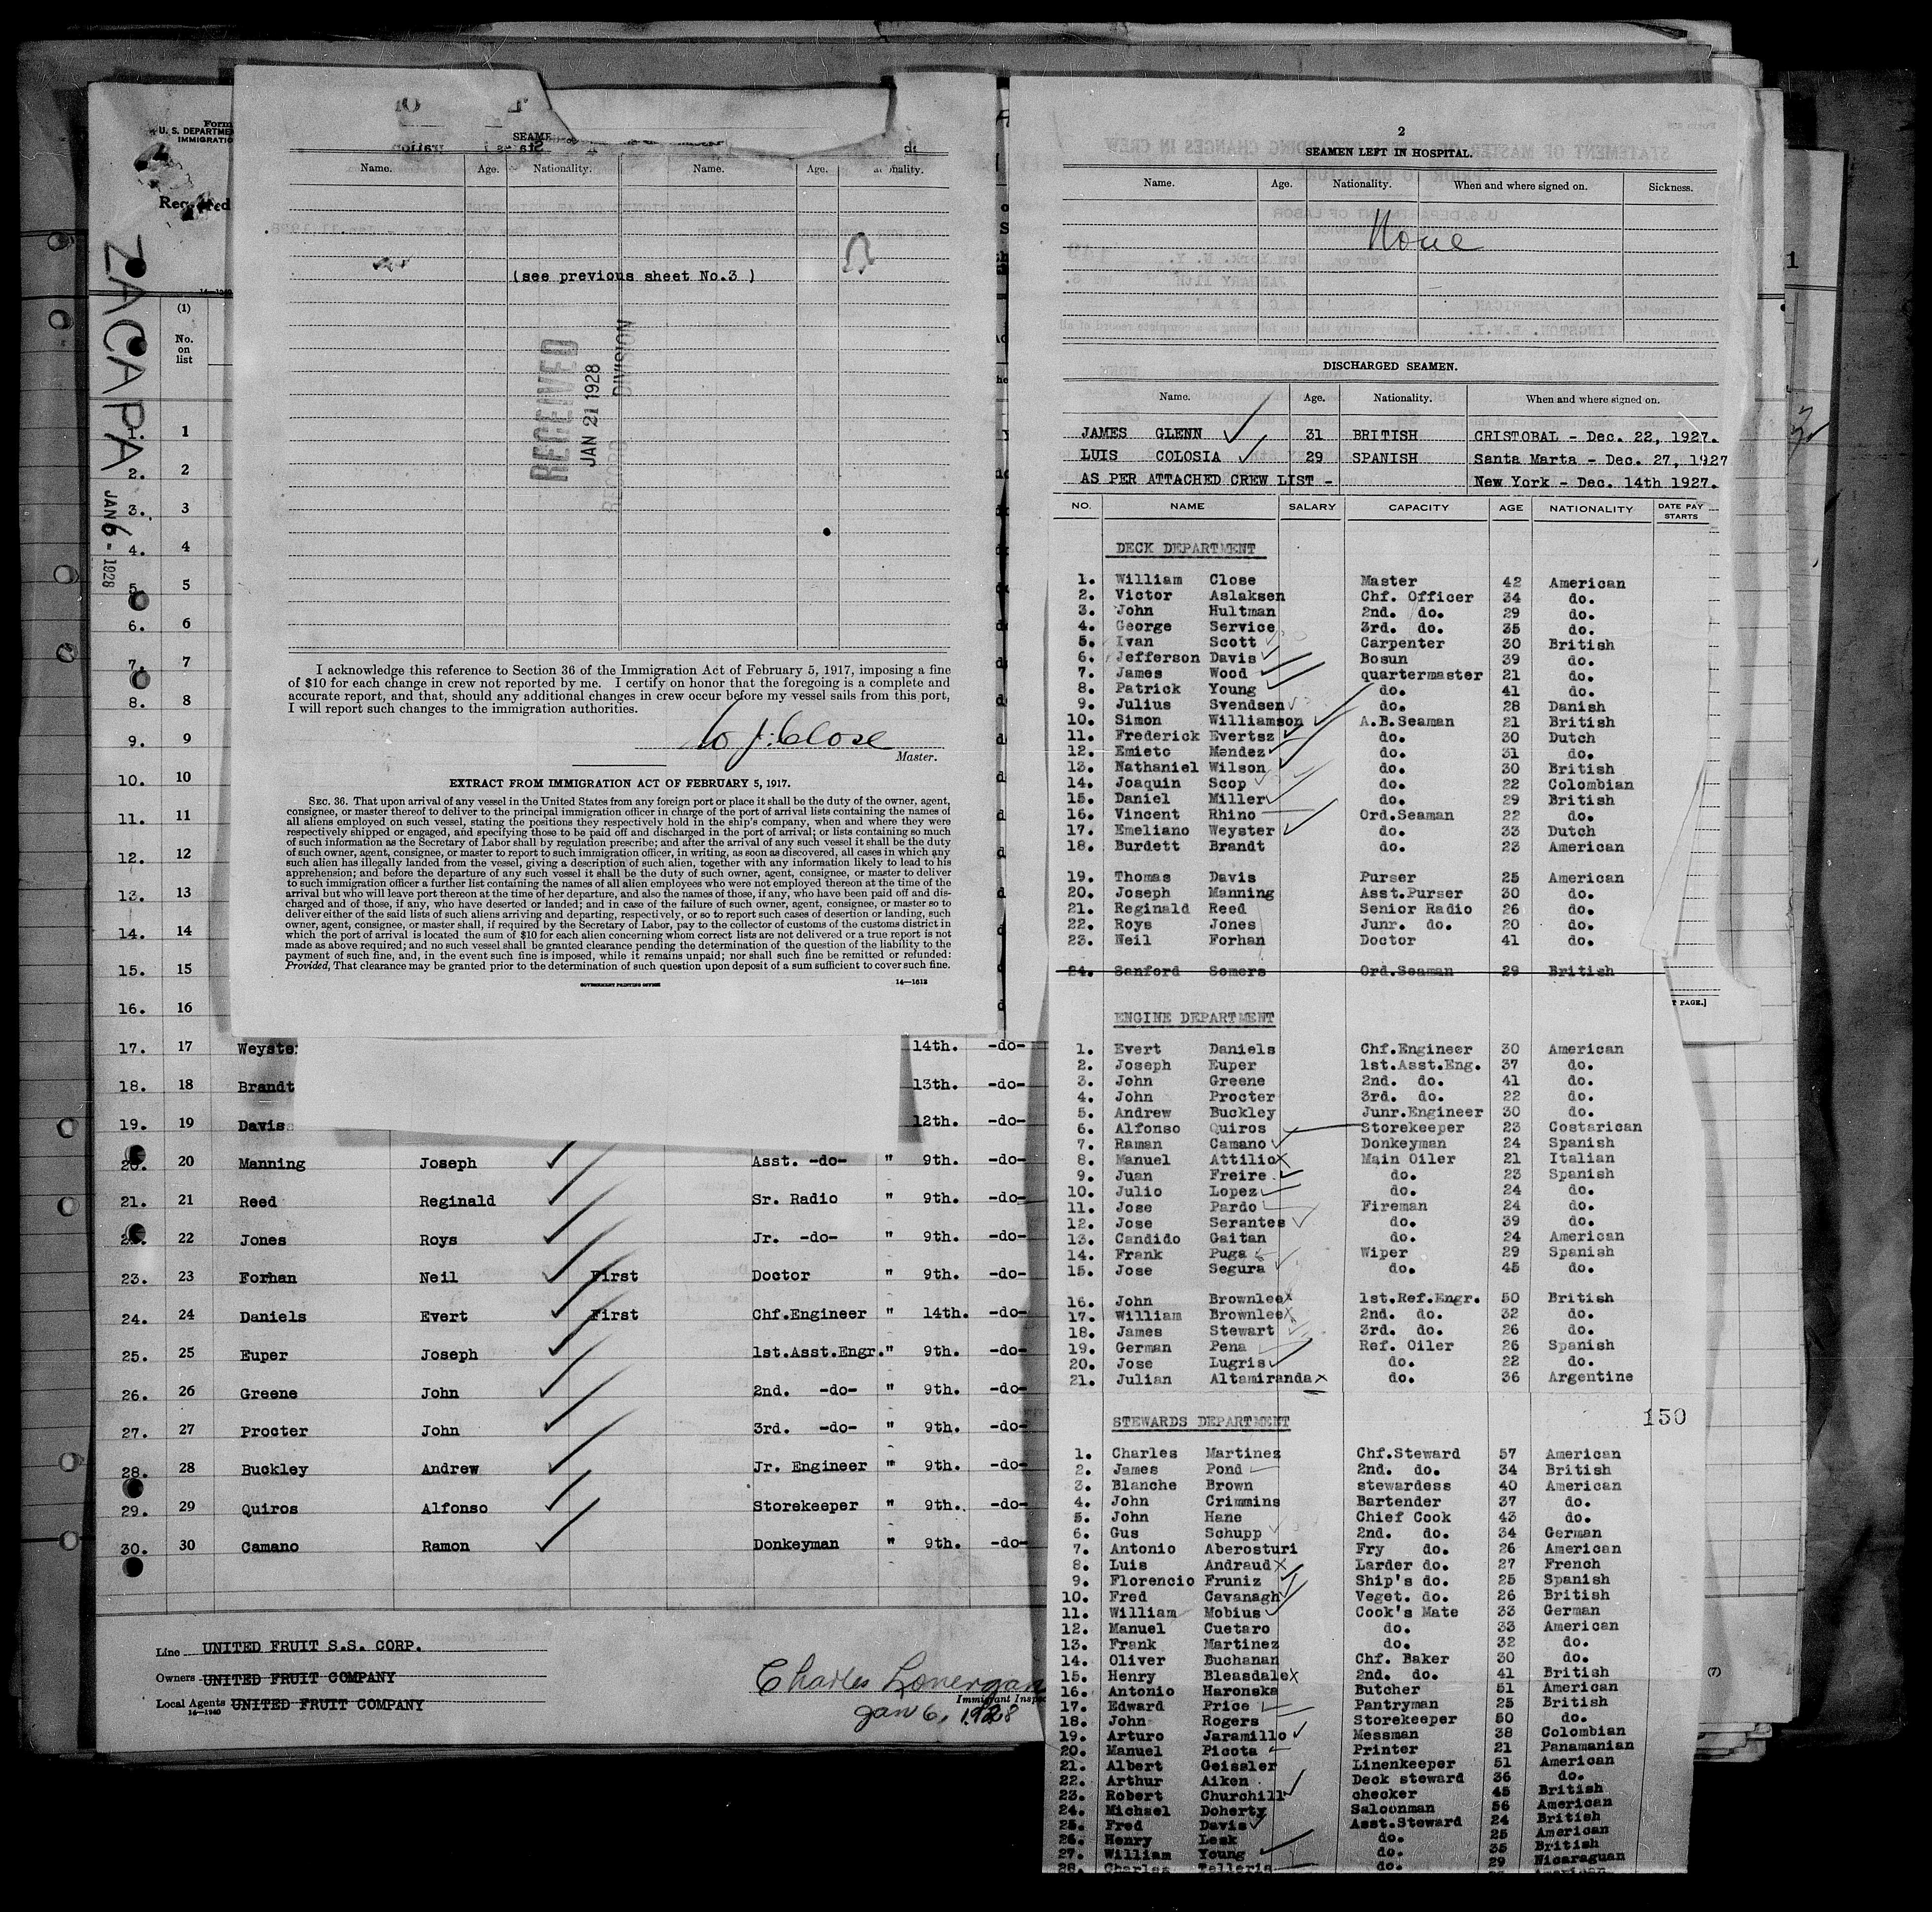 Form
U. S. DEPARTME
IMMIGRATIO
ZACAPA
JAN 6 - 1928
(1)
No.
on
list
1. 1
2. 2
3. 3
4. 4
5. 5
6. 6
7. 7
8. 8
9. 9
10. 10
11. 11
12. 12
13. 13
14. 14
15. 15
16. 16
17. 17 Weyste 14th. -do-
18. 18 Brandt 13th. -do-
19. 19 Davis 12th. -do-
20. 20 Manning Joseph Asst. -do- " 9th. -do-
21. 21 Reed Reginald Sr. Radio " 9th. -do-
22 Jones Roys Jr. -do- " 9th. -do-
23. 23 Forhan Neil First Doctor " 9th. -do-
24. 24 Daniels Evert First Chf.Engineer " 14th. -do-
25. 25 Euper Joseph 1st.Asst.Engr." 9th. -do-
26. 26 Greene John 2nd. -do- " 9th. -do-
27. 27 Procter John 3rd. -do- " 9th. -do-
28. 28 Buckley Andrew Jr. Engineer " 9th. -do-
29. 29 Quiros Alfonso Storekeeper " 9th. -do-
30. 30 Camano Ramon Donkeyman " 9th. -do-
Line UNITED FRUIT S.S. CORP.
Owners UNITED FRUIT COMPANY
Local Agents UNITED FRUIT COMPANY
14—1940
Charles Lonergan
Immigrant Inspe
Jan 6, 1928
SEAME
Name. Age. Nationality. Name. Age. nality.
(see previous sheet No.3 )
RECEIVED
JAN 21 1928
RECORDS DIVISION
I acknowledge this reference to Section 36 of the Immigration Act of February 5, 1917, imposing a fine
of $10 for each change in crew not reported by me. I certify on honor that the foregoing is a complete and
accurate report, and that, should any additional changes in crew occur before my vessel sails from this port,
I will report such changes to the immigration authorities.
W. J. Close
Master.
EXTRACT FROM IMMIGRATION ACT OF FEBRUARY 5, 1917.
SEC. 36. That upon arrival of any vessel in the United States from any foreign port or place it shall be the duty of the owner, agent,
consignee, or master thereof to deliver to the principal immigration officer in charge of the port of arrival lists containing the names of
all aliens employed on such vessel, stating the positions they respectively hold in the ship's company, when and where they were
respectively shipped or engaged, and specifying those to be paid off and discharged in the port of arrival; or lists containing so much
of such information as the Secretary of Labor shall by regulation prescribe; and after the arrival of any such vessel it shall be the duty
of such owner, agent, consignee, or master to report to such immigration officer, in writing, as soon as discovered, all cases in which any
such alien has illegally landed from the vessel, giving a description of such alien, together with any information likely to lead to his
apprehension; and before the departure of any such vessel it shall be the duty of such owner, agent, consignee, or master to deliver
to such immigration officer a further list containing the names of all alien employees who were not employed thereon at the time of the
arrival but who will leave port thereon at the time of her departure, and also the names of those, if any, who have been paid off and dis-
charged and of those, if any, who have deserted or landed; and in case of the failure of such owner, agent, consignee, or master so to
deliver either of the said lists of such aliens arriving and departing, respectively, or so to report such cases of desertion or landing, such
owner, agent, consignee, or master shall, if required by the Secretary of Labor, pay to the collector of customs of the customs district in
which the port of arrival is located the sum of $10 for each alien concerning whom correct lists are not delivered or a true report is not
made as above required; and no such vessel shall be granted clearance pending the determination of the question of the liability to the
payment of such fine, and, in the event such fine is imposed, while it remains unpaid; nor shall such fine be remitted or refunded:
Provided, That clearance may be granted prior to the determination of such question upon deposit of a sum sufficient to cover such fine.
GOVERNMENT PRINTING OFFICE 14—1612
2
SEAMEN LEFT IN HOSPITAL.
Name. Age. Nationality. When and where signed on. Sickness.
None
DISCHARGED SEAMEN.
Name. Age. Nationality. When and where signed on.
JAMES GLENN 31 BRITISH CRISTOBAL - Dec. 22, 1927.
LUIS COLOSIA 29 SPANISH Santa Marta - Dec. 27, 1927
AS PER ATTACHED CREW LIST - New York - Dec. 14th 1927.
NO. NAME SALARY CAPACITY AGE NATIONALITY DATE PAY STARTS
DECK DEPARTMENT
1. William Close Master 42 American
2. Victor Aslaksen Chf. Officer 34 do.
3. John Hultman 2nd. do. 29 do.
4. George Service 3rd. do. 35 do.
5. Ivan Scott Carpenter 30 British
6. Jefferson Davis Bosun 39 do.
7. James Wood quartermaster 21 do.
8. Patrick Young do. 41 do.
9. Julius Svendsen do. 28 Danish
10. Simon Williamson A.B.Seaman 21 British
11. Frederick Evertsz do. 30 Dutch
12. Emieto Mendez do. 31 do.
13. Nathaniel Wilson do. 30 British
14. Joaquin Scop do. 22 Colombian
15. Daniel Miller do. 29 British
16. Vincent Rhino Ord.Seaman 22 do.
17. Emeliano Weyster do. 33 Dutch
18. Burdett Brandt do. 23 American
19. Thomas Davis Purser 25 American
20. Joseph Manning Asst.Purser 30 do.
21. Reginald Reed Senior Radio 26 do.
22. Roys Jones Junr. do. 20 do.
23. Neil Forhan Doctor 41 do.
24. Sanford Somers Ord.Seaman 29 British
T PAGE.]
ENGINE DEPARTMENT
1. Evert Daniels Chf.Engineer 30 American
2. Joseph Euper 1st.Asst.Eng. 37 do.
3. John Greene 2nd. do. 41 do.
4. John Procter 3rd. do. 22 do.
5. Andrew Buckley Junr.Engineer 30 do.
6. Alfonso Quiros Storekeeper 23 Costarican
7. Raman Camano Donkeyman 24 Spanish
8. Manuel Attilio Main Oiler 21 Italian
9. Juan Freire do. 23 Spanish
10. Julio Lopez do. 24 do.
11. Jose Pardo Fireman 24 do.
12. Jose Serantes do. 39 do.
13. Candido Gaitan do. 24 American
14. Frank Puga Wiper 29 Spanish
15. Jose Segura do. 45 do.
16. John Brownlee 1st.Ref.Engr. 50 British
17. William Brownlee 2nd. do. 32 do.
18. James Stewart 3rd. do. 26 do.
19. German Pena Ref. Oiler 26 Spanish
20. Jose Lugris do. 22 do.
21. Julian Altamiranda do. 36 Argentine
150
STEWARDS DEPARTMENT
1. Charles Martinez Chf.Steward 57 American
2. James Pond 2nd. do. 34 British
3. Blanche Brown stewardess 40 American
4. John Crimmins Bartender 37 do.
5. John Hane Chief Cook 43 do.
6. Gus Schupp 2nd. do. 34 German
7. Antonio Aberosturi Fry do. 26 American
8. Luis Andraud Larder do. 27 French
9. Florencio Fruniz Ship's do. 25 Spanish
10. Fred Cavanagh Veget. do. 26 British
11. William Mobius Cook's Mate 33 German
12. Manuel Cuetaro do. 33 American
13. Frank Martinez do. 32 do.
14. Oliver Buchanan Chf. Baker 30 do.
15. Henry Bleasdale 2nd. do. 41 British
16. Antonio Haronska Butcher 51 American
17. Edward Price Pantryman 25 British
18. John Rogers Storekeeper 50 do.
19. Arturo Jaramillo Messman 38 Colombian
20. Manuel Picota Printer 21 Panamanian
21. Albert Geissler Linenkeeper 51 American
22. Arthur Aiken Deck steward 36 do.
23. Robert Churchill checker 45 British
24. Michael Doherty Saloonman 56 American
25. Fred Davis Asst.Steward 24 British
26. Henry Leak do. 25 American
27. William Young do. 35 British
28. Charles Telleria do. 29 Nicaraguan
(7)